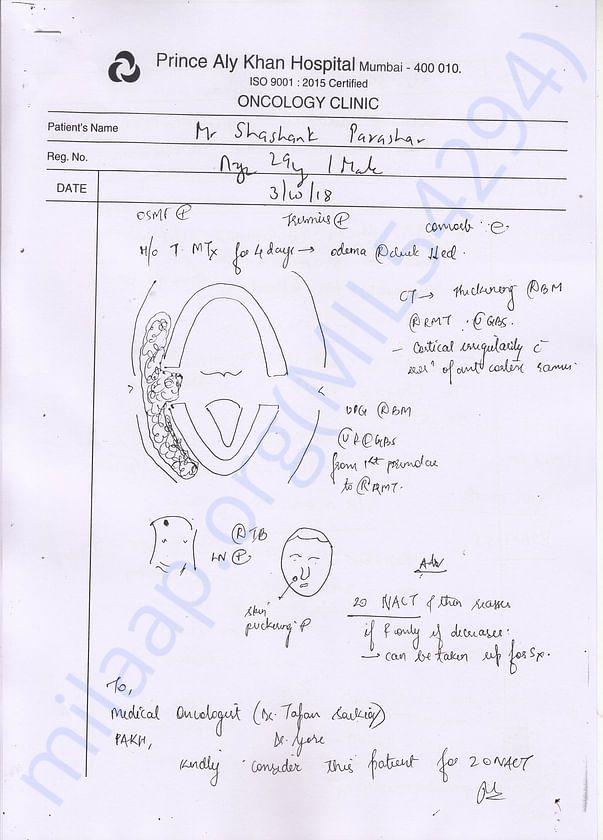 Prince Aly Khan Hospital Mumbai - 400 010.
ISO 9001 : 2015 Certified
ONCOLOGY CLINIC
Patient's Name Mr Shashank Parashar
Reg. No. Age 29y / Male
DATE 3/10/18
OSMF (+) Trismus (+) comorb:
H/o T. MTx for 4 days → odema (R) cheek
CT → thickening (R) BM
(R) RMT
- Cortical irregularity c̄
of ant cortex ramus
UPG (R) BM
from 1st premolar
to (R) RMT.
(R) IB
LN (+)
skin
puckering P
Adv
20 NACT & then reassess
if & only if decreases.
→ can be taken up for Sx.
To,
Medical Oncologist (Dr.
PAKH,
kindly consider this patient for 20NACT
milaap.org(MIL54294)